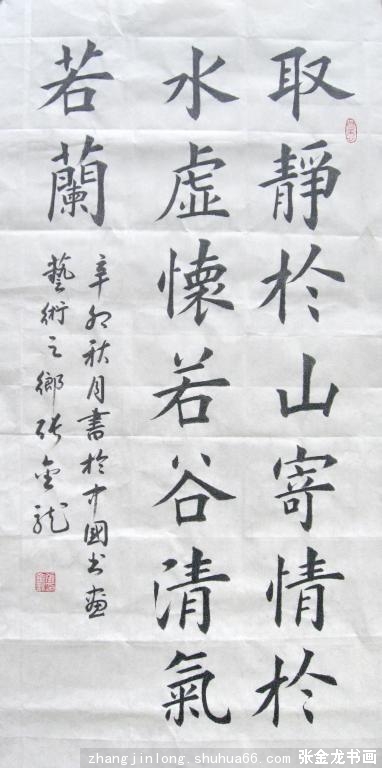 取靜於山寄情於
水虛懷若谷清氣
若蘭
辛卯秋月書於中國書畫
藝術之鄉張金龍
zhangjinlong.shuhua66.com 张金龙书画